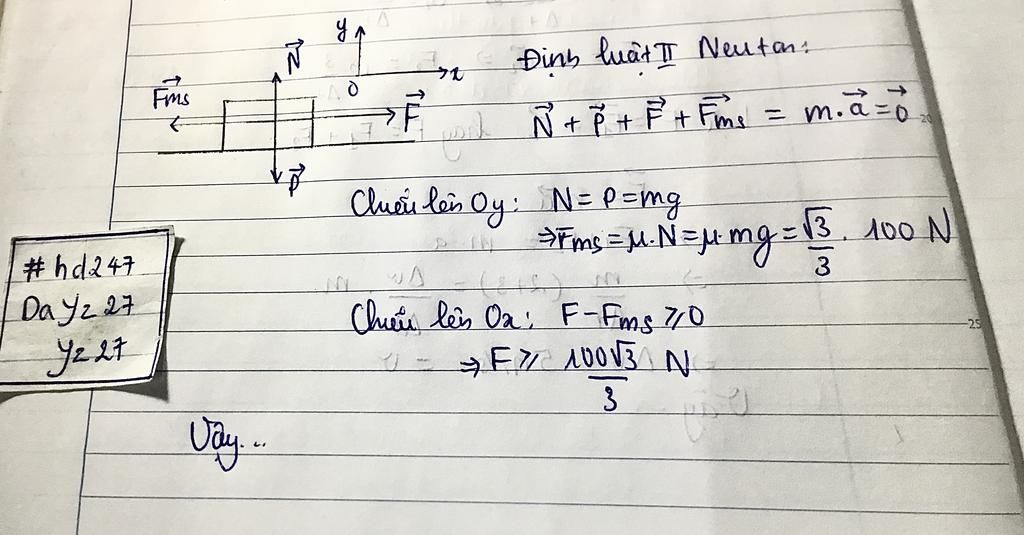 y
N⃗
x
0
F⃗ms
F⃗
P⃗
Định luật II Neutan:
N⃗ + P⃗ + F⃗ + F⃗ms = m.a⃗ = 0⃗
20
Chiếu lên Oy: N = P = mg
⇒ Fms = μ.N = μ.mg = √3/3 . 100 N
Chiếu lên Ox: F - Fms ⩾ 0
25
⇒ F ⩾ 100√3/3 N
Vậy...
#hd247
DaYz27
Yz27